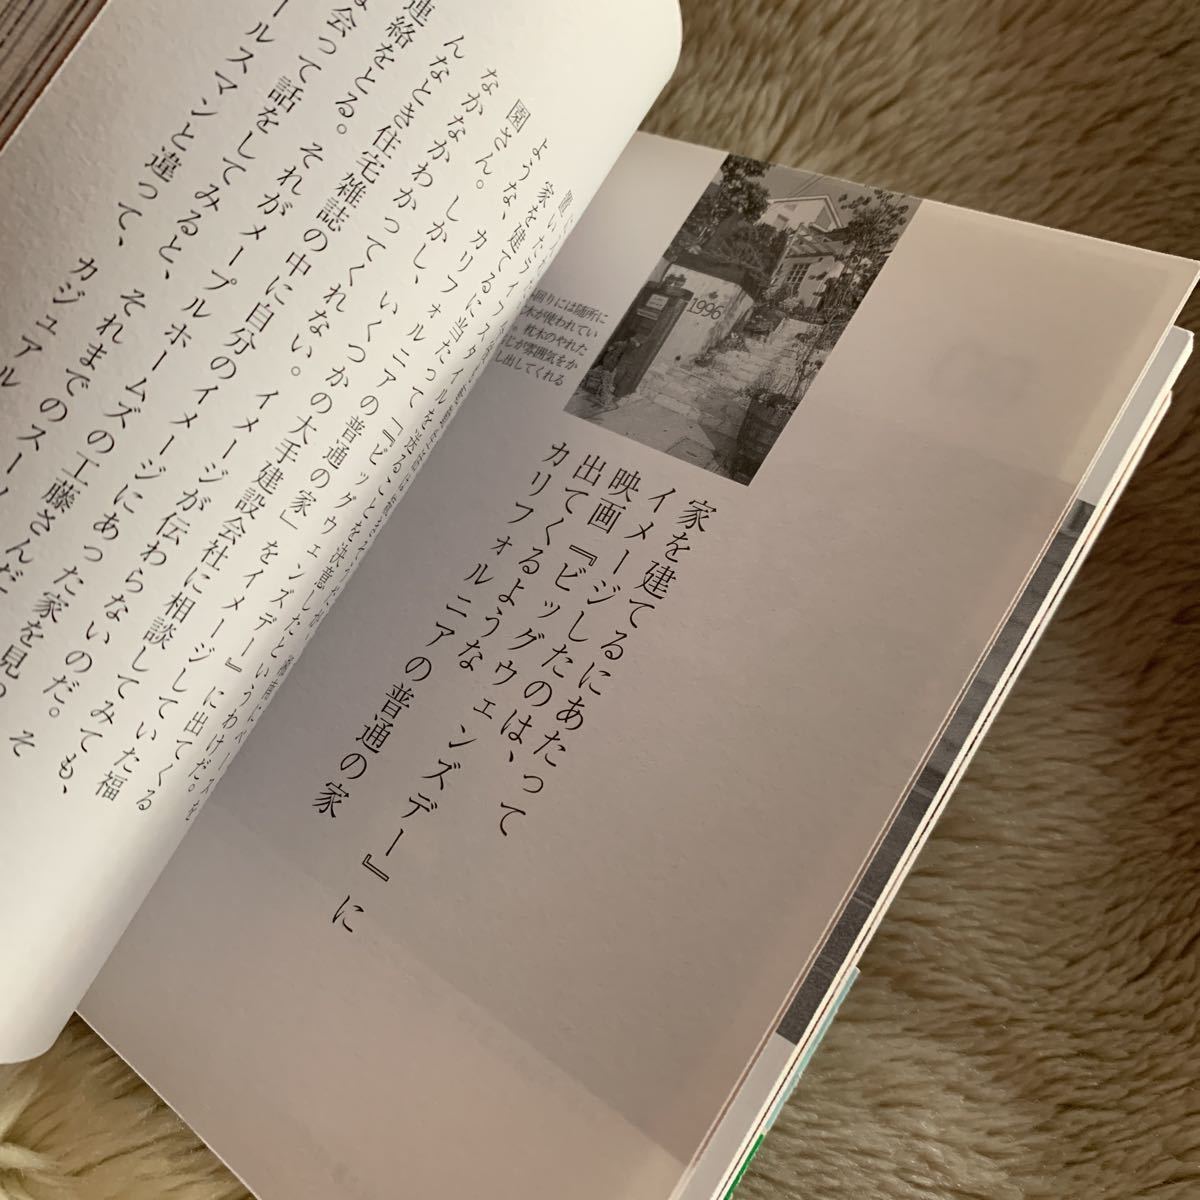 1996
回りには随所に
木が使われてい
。枕木のやれた
じが雰囲気をか
し出してくれる
家を建てるにあたって
イメージしたのは、
映画『ビッグウェンズデー』に
出てくるような
カリフォルニアの普通の家
家を建てるに当たって『ビッグウェンズデー』に出てくる
ような、カリフォルニアの普通の家」をイメージしていた福
園さん。しかし、いくつかの大手建設会社に相談してみても、
なかなかわかってくれない。イメージが伝わらないのだ。そ
んなとき住宅雑誌の中に自分のイメージにあった家を見
連絡をとる。それがメープルホームズの工藤さんだ
会って話をしてみると、それまでのスー
ールスマンと違って、カジュアル